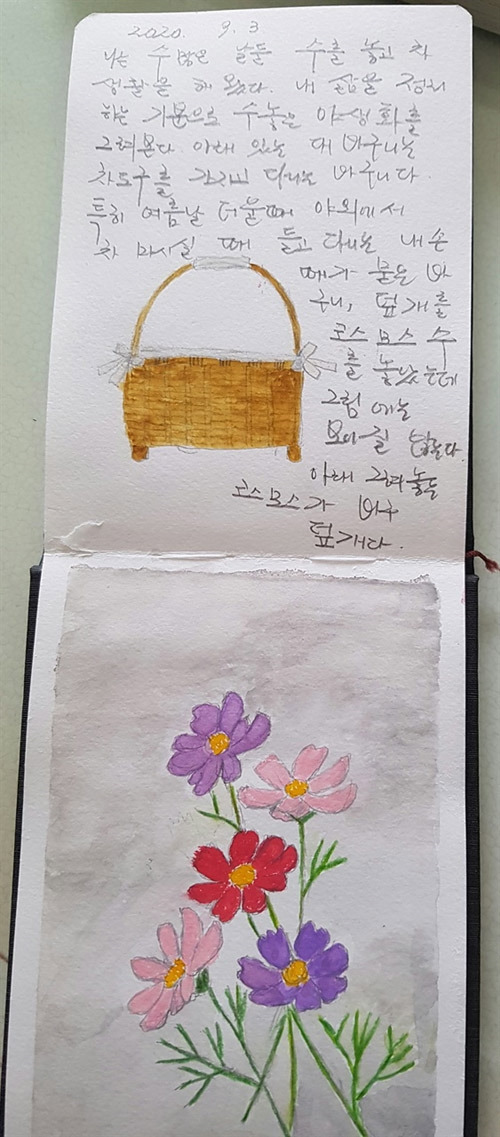 2020. 9. 3
나는 수많은 날들 수를 놓고 차
생활을 해 왔다. 내 삶을 정리
하는 기분으로 수놓은 야생화를
그려본다 아래 있는 대 바구니는
차도구를 가지고 다니는 바구니다.
특히 여름날 더울때 야외에서
차 마시실 때 들고 다니는 내 손
때가 묻은 바
구니, 덮개를
코스모스 수
를 놓았는데
그림에는
보이질 않는다.
아래 그려놓은
코스모스가 바구
덮개다.